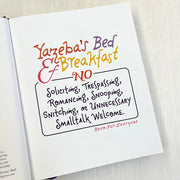 Yazeba's Bed
& Breakfast
NO
Soliciting, Trespassing,
Romancing, Snooping,
Snitching, or Unnecessary
Smalltalk Welcome.
Room for Everyone